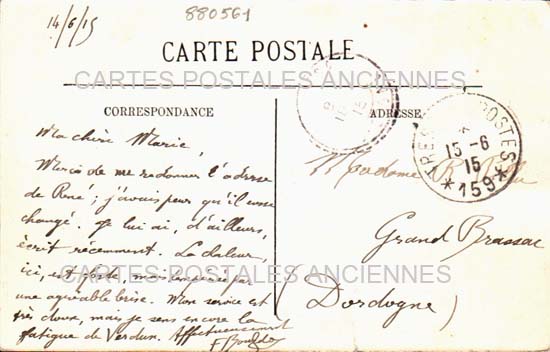 14/6/15
880561
CARTE POSTALE
CARTES POSTALES ANCIENNES
CORRESPONDANCE
ADRESSE
Ma chère Marie,
Merci de me redonner l'adresse
de René ; j'avais peur qu'il eusse
changé. Je lui ai, d'ailleurs,
écrit récemment. La chaleur,
ici, est forte, mais tempérée par
une agréable brise. Mon service est
très doux, mais je sens encore la
fatigue de Verdun. Affectueusement
TRESOR POSTES
15-6
15
*159*
Madame R.
Grand Brassac
(Dordogne)
CARTES POSTALES ANCIENNES